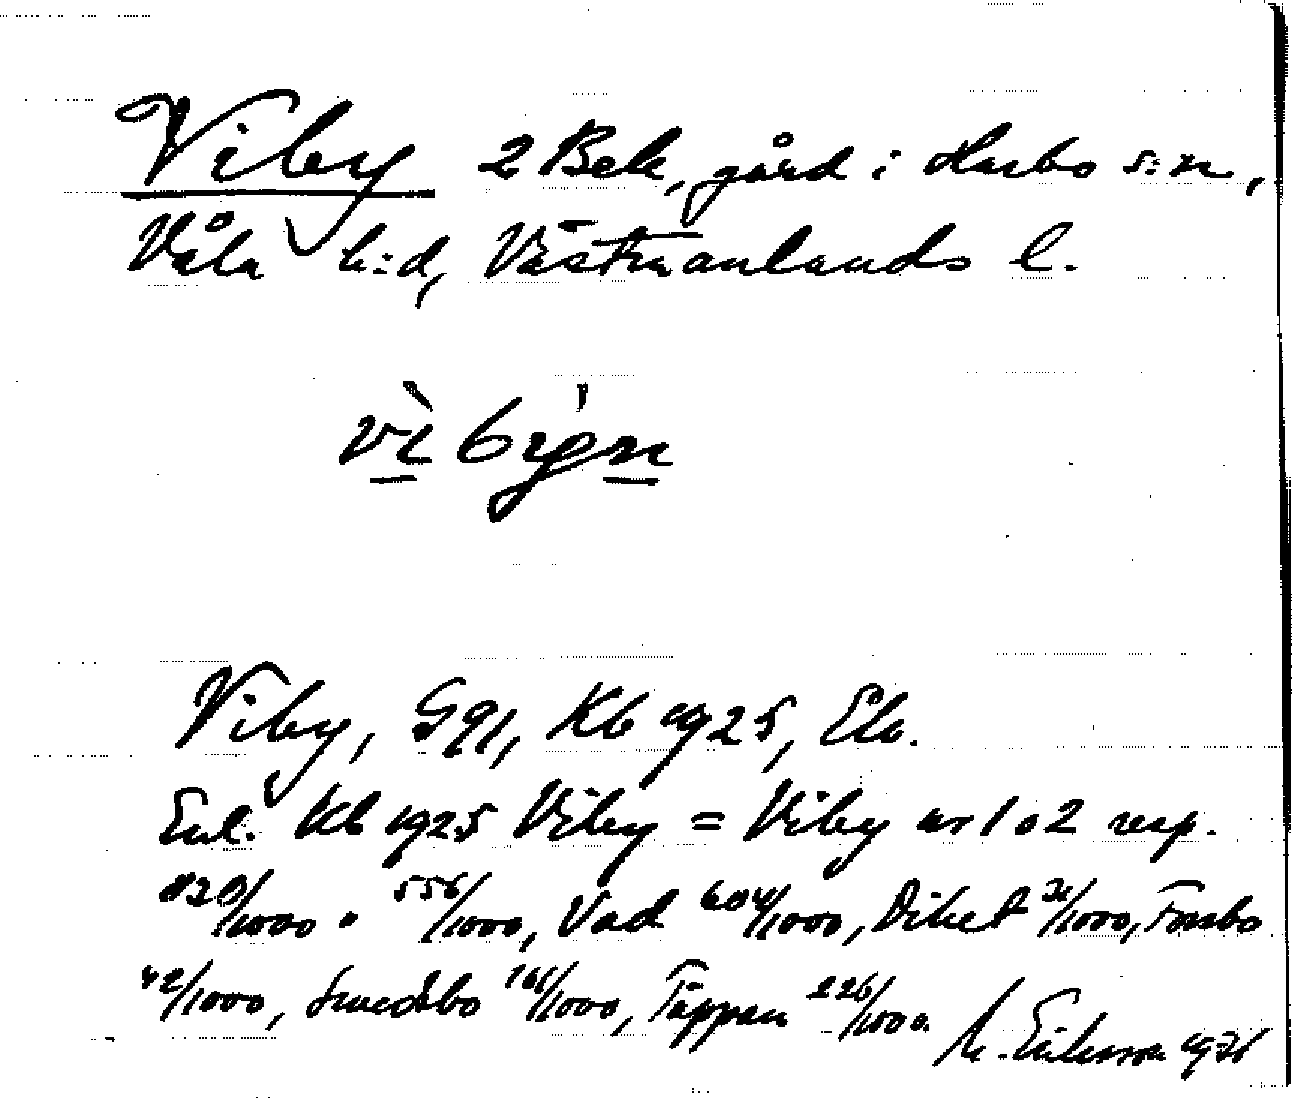 Viby 2 Bel, gård i Harbo s:n,
Våla h:d, Västmanlands l.
vìbyn
Viby, G 91, Kb 1925, Eb.
Enl. Kb 1925 Viby = Viby nr 1 o 2 resp.
820/1000 o 556/1000, Vad 604/1000, Diket 21/1000, Forsbo
42/1000, Smedsbo 161/1000, Täppan 226/1000.
M. Eriksson 1931